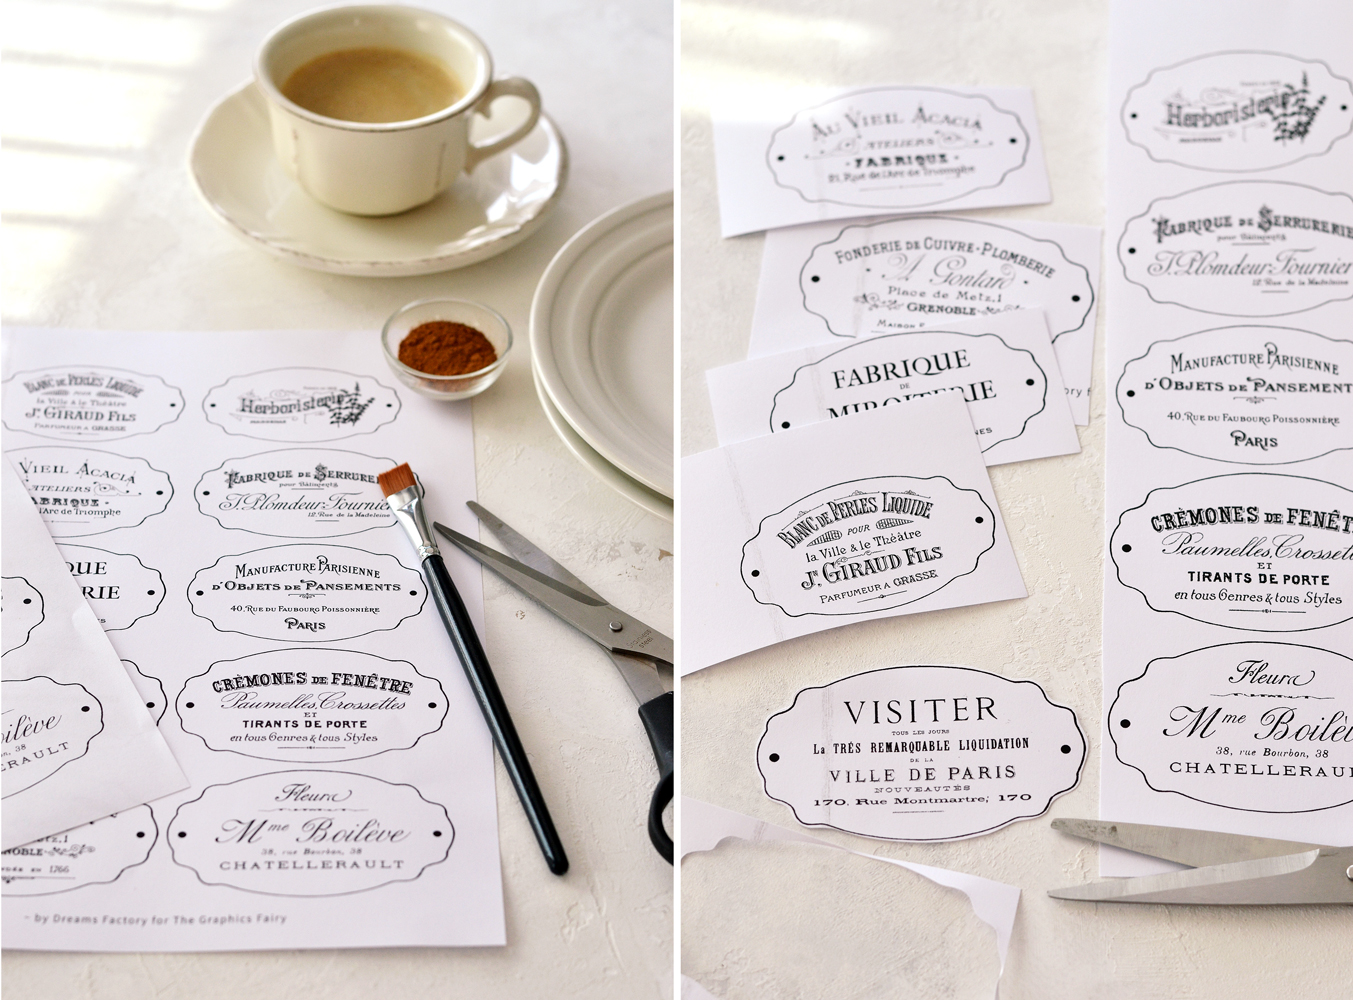 BLANC DE PERLES LIQUIDE
POUR
la Ville & le Théâtre
Jne GIRAUD FILS
PARFUMEUR A GRASSE
Herboristerie
VIEIL ACACIA
ATELIERS
FABRIQUE
l'Arc de Triomphe
FABRIQUE DE SERRURERIE
pour Bâtiments
T. Plomdeur-Fournier
12. Rue de la Madeleine
QUE
RIE
MANUFACTURE PARISIENNE
D'OBJETS DE PANSEMENTS
40, RUE DU FAUBOURG POISSONNIÈRE
PARIS
CRÈMONES DE FENÊTRE
Paumelles, Crossettes
ET
TIRANTS DE PORTE
en tous Genres & tous Styles
oilève
on, 38
ERAULT
etz,1
NOBLE
DÉE EN 1766
Fleurs
Mme Boilève
38, rue Bourbon, 38
CHATELLERAULT
~ by Dreams Factory for The Graphics Fairy
AU VIEIL ACACIA
ATELIERS
· FABRIQUE ·
51, Rue de l'Arc de Triomphe
FONDERIE DE CUIVRE · PLOMBERIE
A. Gontard
Place de Metz,1
GRENOBLE
MAISON F
FABRIQUE
DE
MIROITERIE
NES
ory f
BLANC DE PERLES LIQUIDE
POUR
la Ville & le Théâtre
Jne GIRAUD FILS
PARFUMEUR A GRASSE
VISITER
TOUS LES JOURS
LA TRÈS REMARQUABLE LIQUIDATION
DE LA
VILLE DE PARIS
NOUVEAUTÉS
170, Rue Montmartre, 170
Herboristerie
FABRIQUE DE SERRURERIE
pour Bâtiments
T. Plomdeur-Fournier
12. Rue de la Madeleine
MANUFACTURE PARISIENNE
D'OBJETS DE PANSEMENT
40, RUE DU FAUBOURG POISSONNIÈRE
PARIS
CRÈMONES DE FENÊT
Paumelles, Crossette
ET
TIRANTS DE PORTE
en tous Genres & tous Styles
Fleurs
Mme Boilè
38, rue Bourbon, 38
CHATELLERAUL